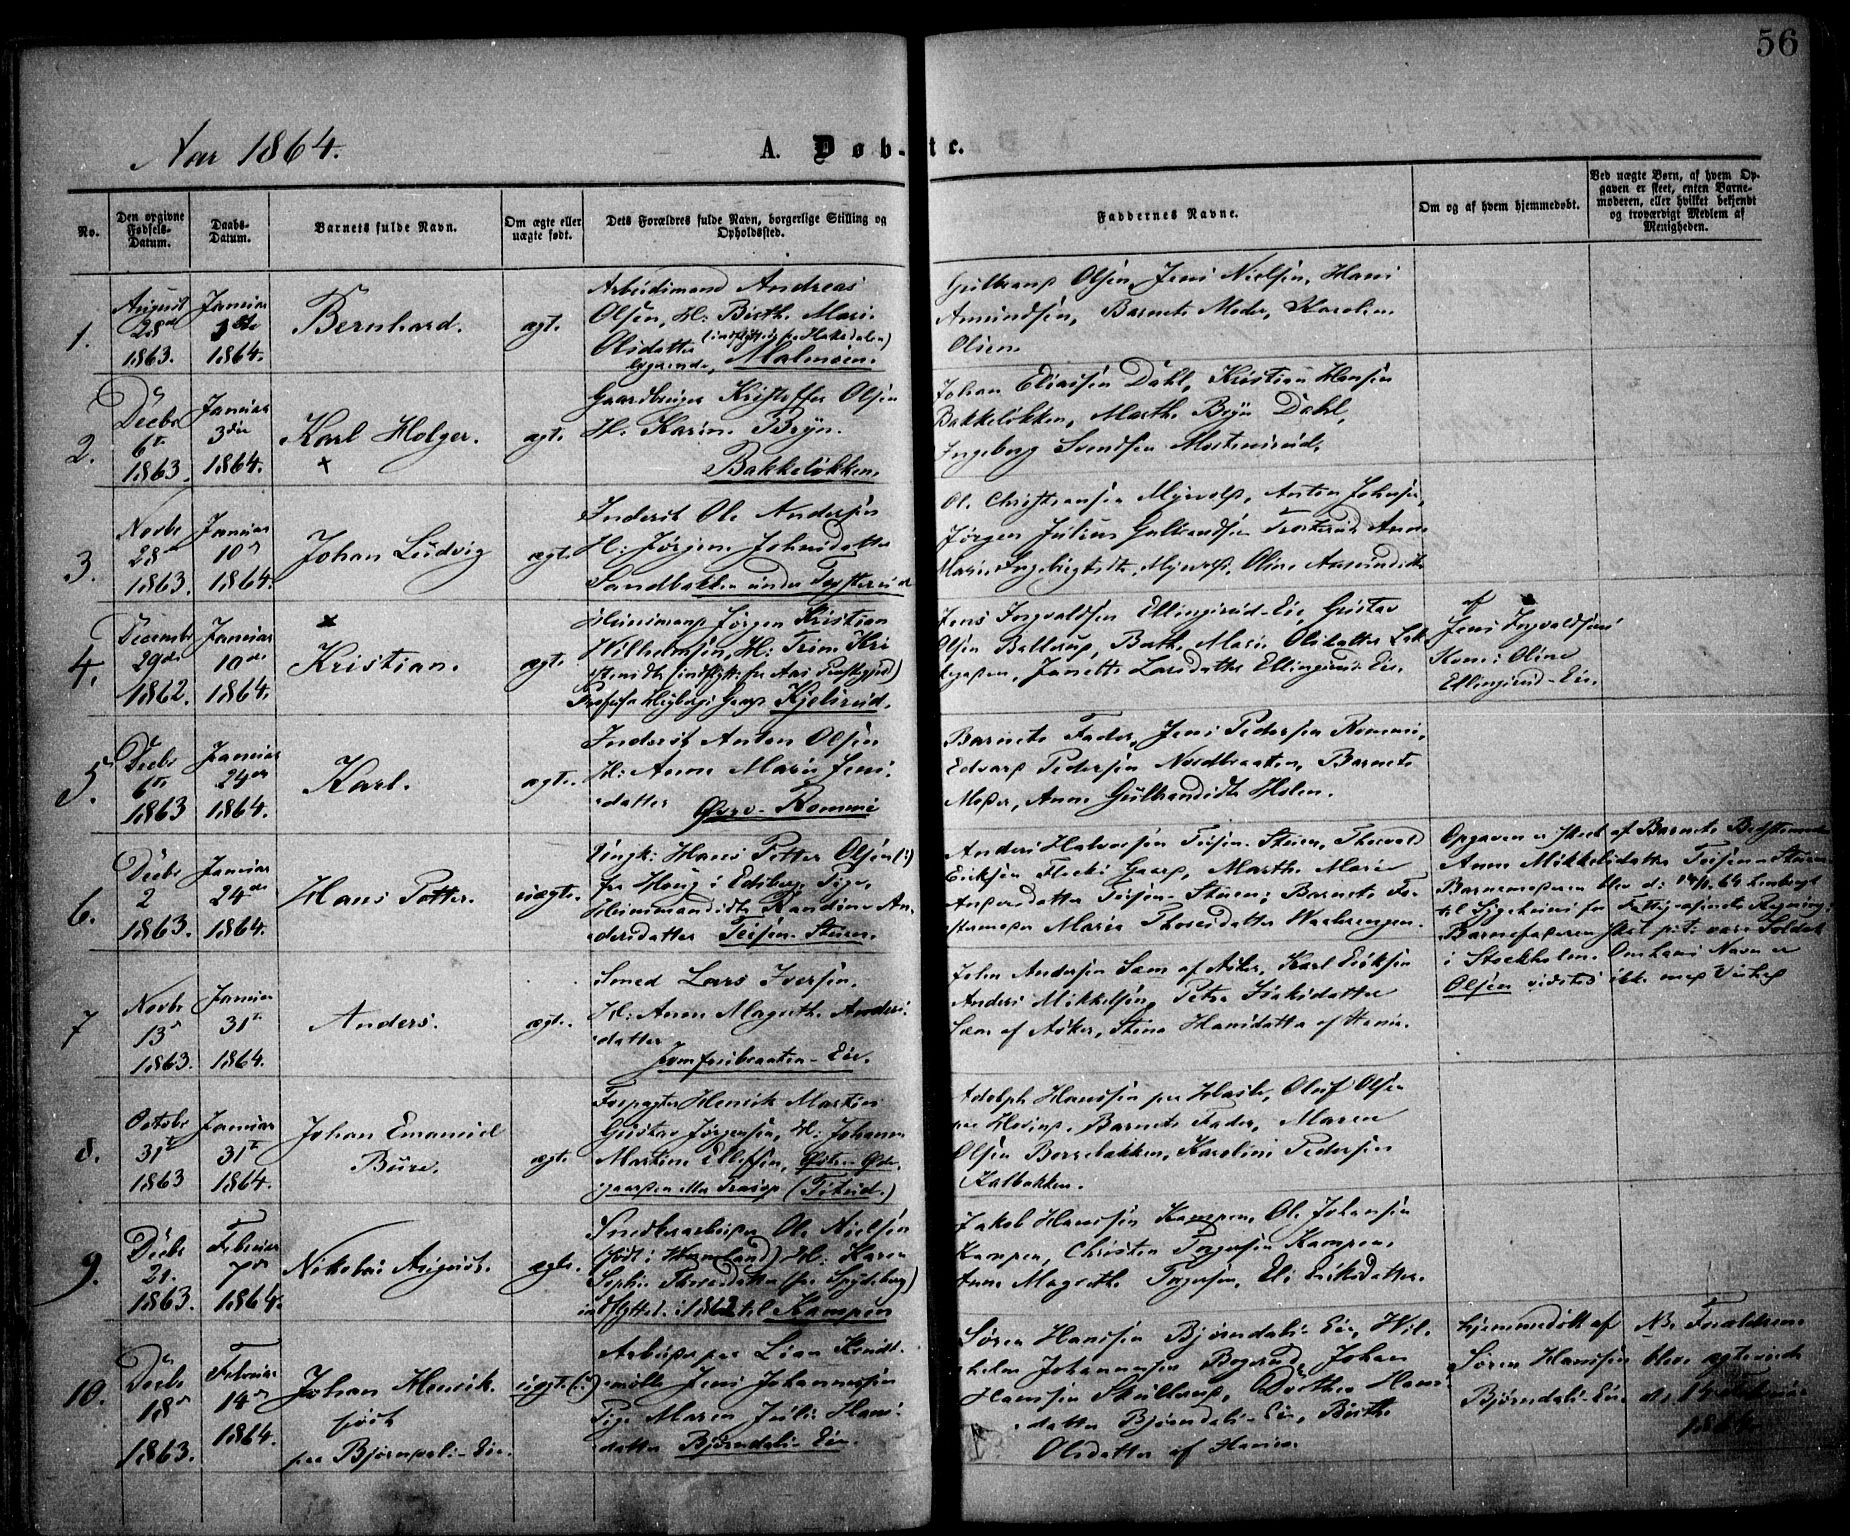 56
Aar 1864.
A. Døb- te.
No.
Den opgivne Fødsels-Datum.
Daabs-Datum.
Barnets fulde Navn.
Om ægte eller uægte født.
Dets Forældres fulde Navn, borgerlige Stilling og Opholdssted.
Faddernes Navne.
Om og af hvem hjemmedøbt.
Ved uægte Børn, af hvem Opgaven er skeet, enten Barnemoderen, eller hvilket bekjendt og troværdigt Medlem af Menigheden.
1.
August 28de 1863.
Januar 1864.
Bernhard.
ægte.
Arbeidsmand Andreas
Olsen, H: Birth. Mari.
Olsdatter (indflyttet fra Hakedalen)
logerende, Malmøen.
Gulbrand Olsen, Jens Nielsen, Hans
Amundsen, Barnets Moder, Karolin
Olsen.
2.
Decbr 6te 1863.
Januar 3die 1864.
Karl Holger.
+
ægte.
Gaardbruger Kristoffer Olsen
H. Karin. Bryn.
Bakkeløkken.
Johan Eliassen Dahl, Kristian Hansen
Bakkeløkken, Marthe Bryn Dahl,
Ingeborg Svendsen Mortensrud.
3.
Novbr 28de 1863.
Januar 10de 1864.
Johan Ludvig
ægte.
Inderst Ole Andersen
H: Jørgine Johnsdatter
Sandbakken under
Ole Christiansen Myrvold, Anton Johnsen,
Jørgen Julius Gulbrandsen Anne
Marie Ingebrigtsdtr. Myrvold, Oline Amundsdtr
4.
December 29de 1862.
Januar 10de 1864.
x
Kristian.
ægte.
Huusmand Jørgen Kristian
Wilhelmsen, H: Trine Kri
stensdtr (indflytt. fra Aas Præstegjeld)
Professor Heibergs Gaard Kjelsrud.
Jens Ingvaldsen Ellingsrud-Eie, Gustav
Olsen Ballerup, Berth. Marie Olsdatter
Janette Larsdatter Ellingsrud-Eie.
af
Jens Ingvaldsens
Kone: Oline
Ellingsrud-Eie.
5.
Decbr 6te 1863
Januar 24de 1864.
Karl.
ægte.
Inderst Anton Olsen
H: Anne Marie Jens-
datter Øvre-Rommi
Barnets Fader, Jens Pedersen Rommi,
Edvard Pedersen Nordbraaten, Barnets
Moder, Anne Gulbrandsdtr Holen.
6.
Decbr 2 1863.
Januar 24de 1864.
Hans Petter.
uægte.
Ungk: Hans Petter Olsen (:)
fra Houg i Edsberg, Pige,
Huusmandsdtr Randine An-
dersdatter Teisen-Stuen.
Anders Halvorsen Teisen-Stuen, Thorvald
Eriksen Gaard, Marthe Marie
Andersdatter Teisen-Stuen; Barnets Fa-
stermoder Marie Thoresdatter Waalerengen.
Opgaven er skeet af Barnets Bedstemoder
Anne Mikkelsdatter Teisen-Stuen
Barnemoderen blev d: 14/1 64 henbragt
til Sygehuset for Fattigvæsenets Regning;
Barnefaderen skal pt: være Soldat
i Stockholm. Om hans Navn er
Olsen vidstes ikke med Vished
7
Novbr 13de 1863.
Januar 31te 1864.
Anders.
ægte.
Smed Lars Iversen,
H: Anne Magreth. Anders-
datter
Jomfrubraaten-Eie.
John Andersen Sæm af Asker, Karl Eriksen
Anders Mikkelsen, Petra Isaksdatter
Sæm af Asker, Stine Hansdatter af
8.
Octobr 31te 1863
Januar 31te 1864.
Johan Emanuel
Bure.
ægte.
Forpagter Henrik Martin
Gustav Jørgensen, H: Johanne
Martine Ellefsen,
Adolph Hanssen paa Hasle, Oluf Olsen
paa Hovind. Barnets Fader, Maren
Olsen Borrebakken, Karoline Pedersen
Kalbakken.
9.
Decbr 21. 1863.
Februar 7de 1864.
Nikolai August.
ægte.
Snedkerarbeider Ole Nielsen
(født i Wermland) H: Karen
Sophie Thoresdatter (fra Spydeberg)
indflyttet i 1862 til Kampen
Jakob Hanssen Kampen, Ole Johansen
Kampen, Christen Torgersen Kampen.
Anne Magrethe Torgersen, Eli Eriksdatter.
10.
Decbr 18de 1863.
Februar 14de 1864.
Johan Henrik.
født
paa Bjørndals-Eie.
uægte (:)
Arbeider paa Lian
mølle Jens Johannessen
Pige Maren Julie Hans-
datter Bjørndals-Eie.
Søren Hanssen Bjørndals-Eie, Wil-
helm Johannessen Bogerud, Johan
Hanssen Skullerud, Dorthea Hans-
datter Bjørndals-Eie, Birthe
Olsdatter af
hjemmedøbt af
Søren Hanssen
Bjørndals-Eie.
NB. Forældrene
bleve ægteviede
d. 14 Februar
1864.